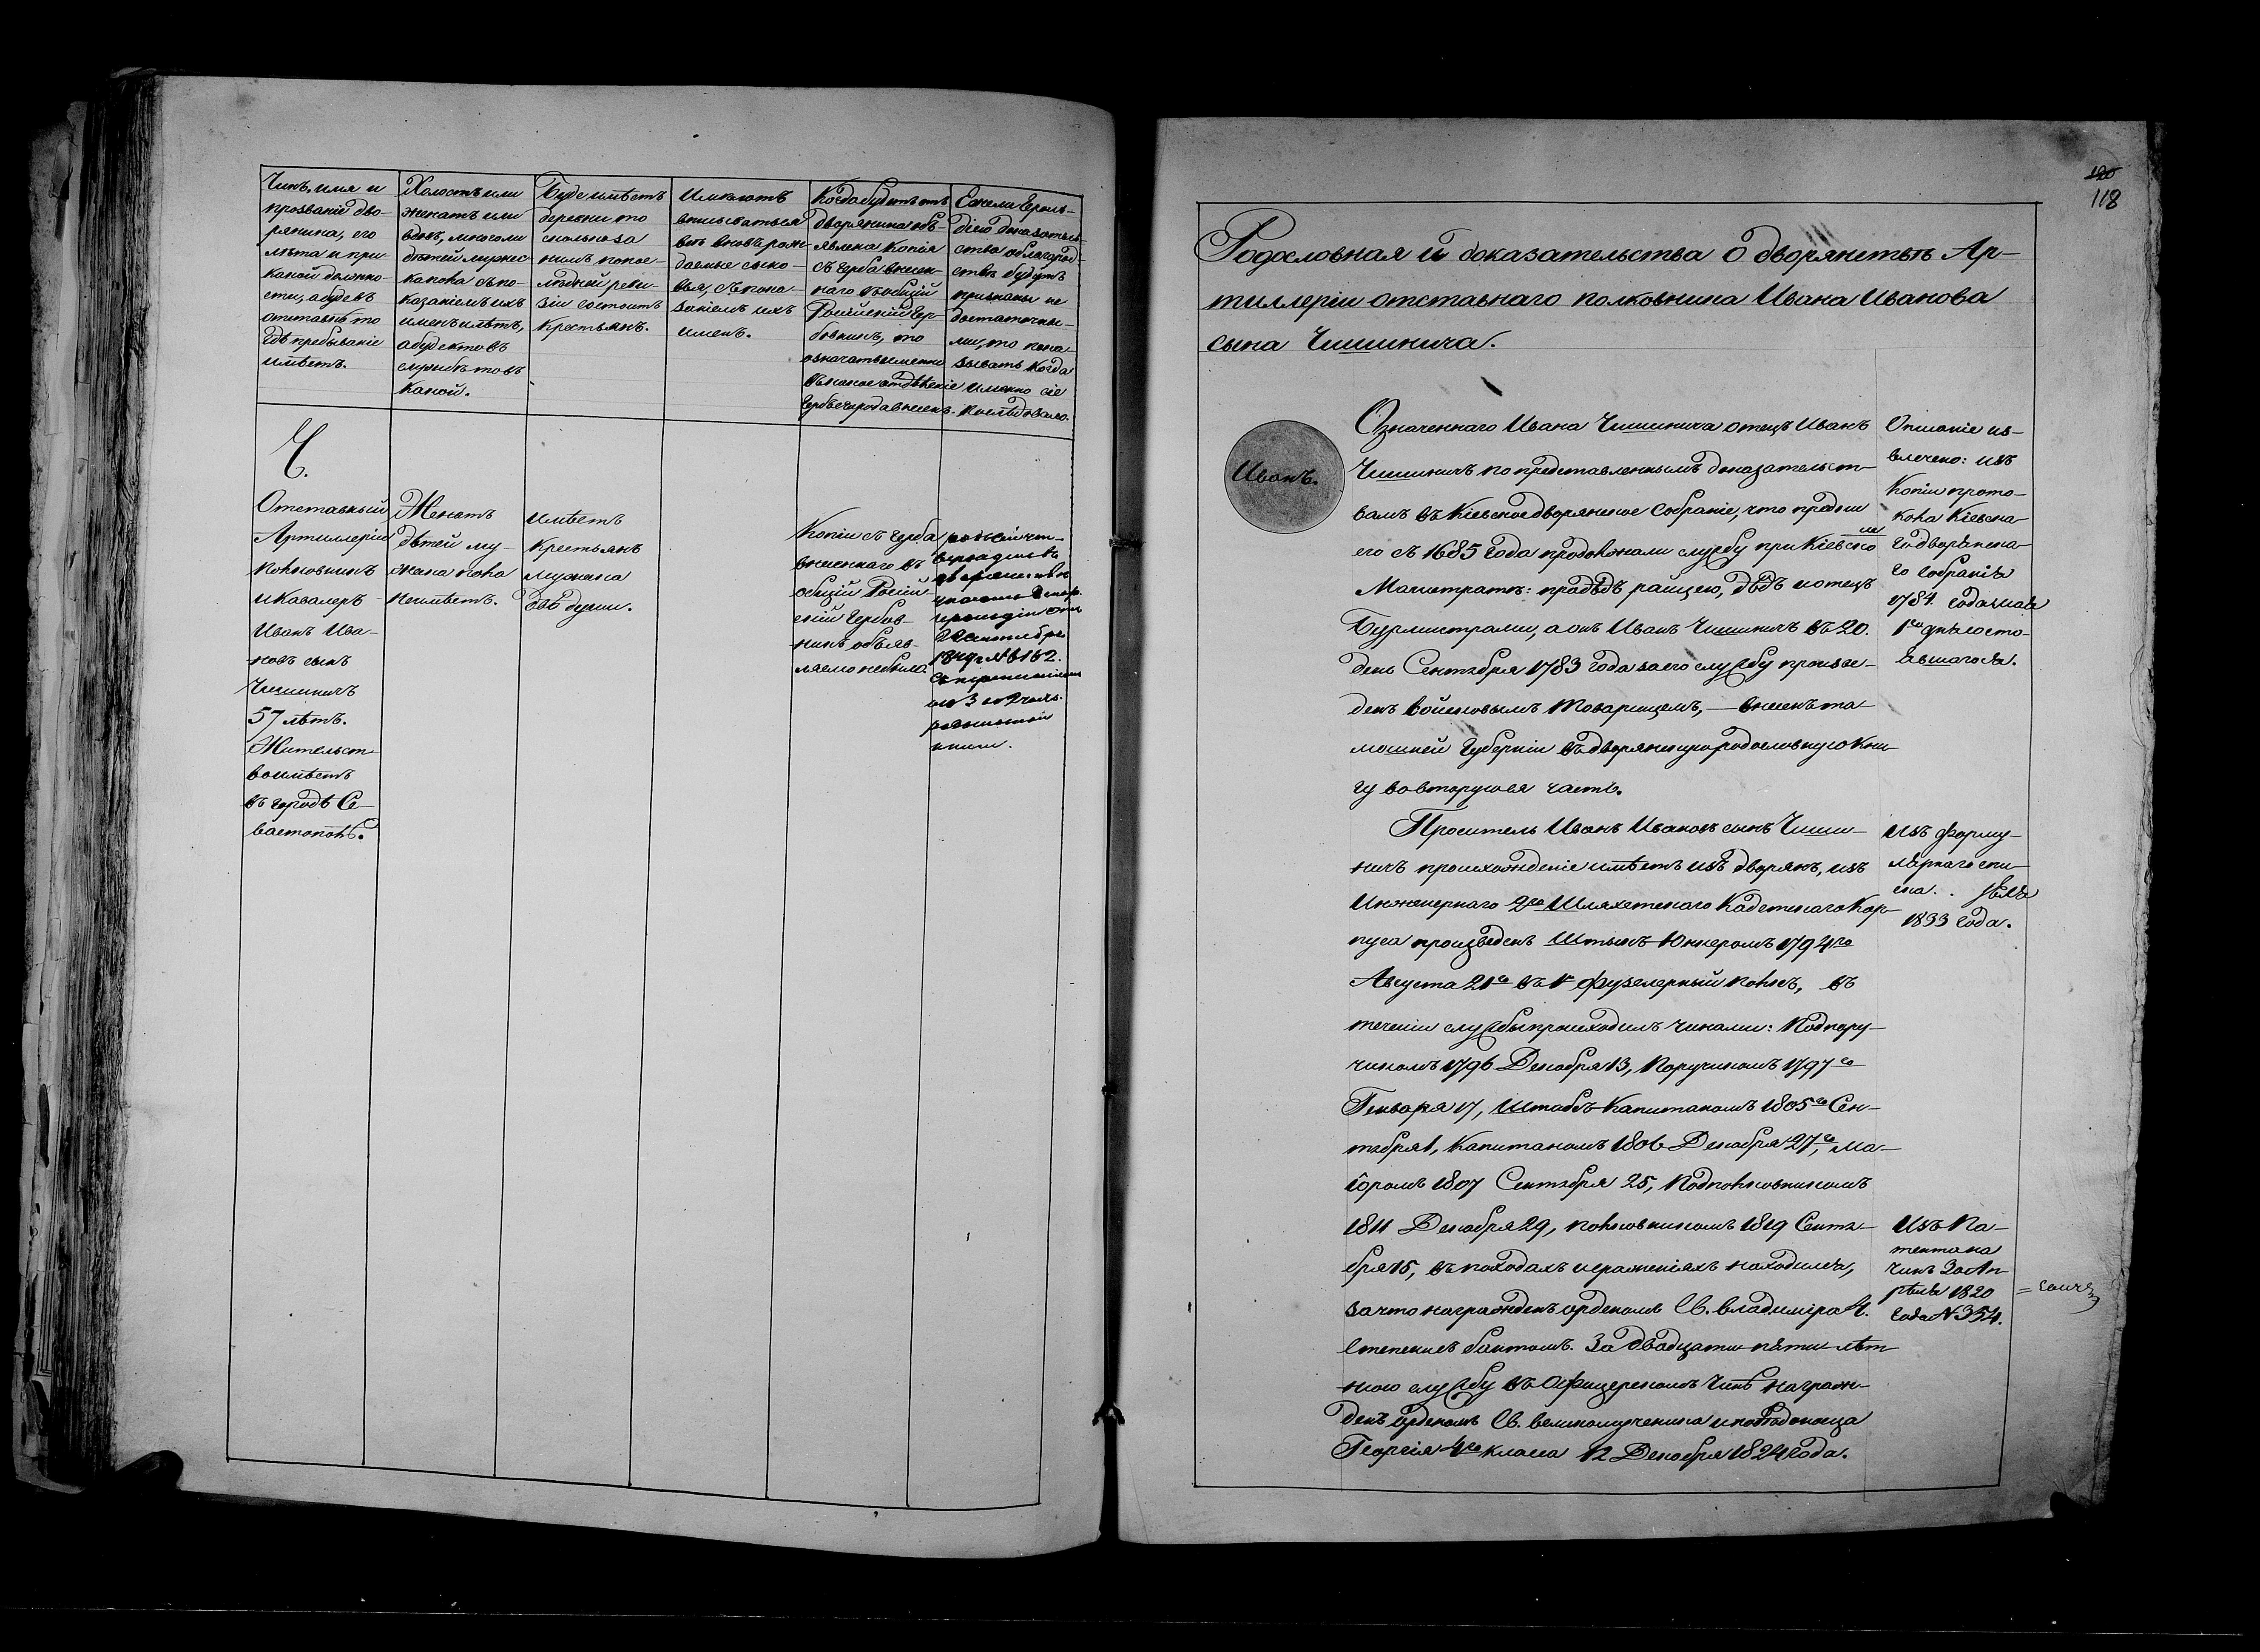 Чинъ, имя и
прозваніе дво-
рянина, его
лѣта и при
какой должно-
сти, а буде въ
отставкѣ то
гдѣ пребываніе
имѣетъ.
Холостъ или
женатъ или
вдовъ, много ли
дѣтей мужес-
каго пола съ по-
казаніемъ ихъ
именъ и лѣтъ,
а буде кто въ
службѣ то въ
какой.
Буде имѣетъ
деревни то
сколько за
нимъ по пос-
лѣдней реви-
зіи состоитъ
крестьянъ.
Имѣютъ
вписываться
всѣ вновь рож-
даемые сыно-
вья, съ пока-
заніемъ ихъ
именъ.
Когда будетъ отъ
дворянина объ-
явлена копія
съ герба внесен-
наго въ общій
Россійскій Гер-
бовникъ, то
означать именно
въ какое отдѣленіе
гербъ его рода внесенъ.
Ежели Героль-
діею доказатель-
ства о благород-
ствѣ будутъ
признаны не
достаточны-
ми, то пока-
зывать когда
именно сіе
послѣдовало.
Ч.
Отставный
Артиллеріи
полковникъ
и Кавалеръ
Иванъ Ива-
новъ сынъ
Чишиничъ
57 лѣтъ.
Жительст-
во имѣетъ
въ городѣ Се-
вастополѣ.
Женатъ
дѣтей му-
жеска пола
неимѣетъ.
Имѣетъ
крестьянъ
мужеска
душъ.
Копіи съ герба
внесеннаго въ
общій Россій-
скій Гербов-
никъ объяв-
ляемо небыло.
дворянствѣ
Герольдіи отъ
22 Сентября
№ 6162.
книги.
120
118
Родословная и доказательства о дворянствѣ Ар-
тиллеріи отставнаго полковника Ивана Иванова
сына Чишинича.
Иванъ.
Означеннаго Ивана Чишинича отецъ Иванъ
Чишиничъ по представленнымъ доказательст-
вамъ въ Кіевское дворянское собраніе, что предки
его съ 1685 года продолжали службу при Кіевско
мъ
Магистратѣ: прадѣдъ райцею, дѣдъ и отецъ
Бурмистрами, а онъ Иванъ Чишиничъ въ 20.
день Сентября 1783 года за его службу произве-
денъ войсковымъ товарищемъ, — внесенъ та-
мошней Губерніи въ дворянскую родословную кни-
гу во вторую ея часть.
Описаніе из-
влечено: изъ
копіи прото-
кола Кіевска-
го дворянска-
го собранія
1784. года мая
1го дня состо-
явшагося.
Проситель Иванъ Ивановъ сынъ Чиши-
ничъ происхожденіе имѣетъ изъ дворянъ, изъ
Инженернаго 2го Шляхетскаго Кадетскаго Кор-
пуса произведенъ Штыкъ-Юнкеромъ 1794го
Августа 21го въ 1й фузелерный полкъ, въ
теченіи службы происходилъ чинами: Подпору-
чикомъ 1796 Декабря 13, Поручикомъ 1797го
Генваря 17, Штабсъ-Капитаномъ 1805го Сен-
тября 1, Капитаномъ 1806 Декабря 27го, Ма-
іоромъ 1807 Сентября 25, Подполковникомъ
1811 Декабря 29, полковникомъ 1819 Сентя-
бря 15, въ походахъ и сраженіяхъ находился,
за что награжденъ орденомъ Св. Владиміра 4.
степени съ бантомъ. За двадцати-пяти лѣт-
нюю службу въ Офицерскомъ чинѣ награж-
денъ орденомъ Св. великомученика и побѣдоносца
Георгія 4го класса 12 Декабря 1824 года.
Изъ форму-
лярнаго спи-
ска.
1833 года.
Изъ Па-
тента на
чинъ 30 Ап-
рѣля 1820
года № 354.